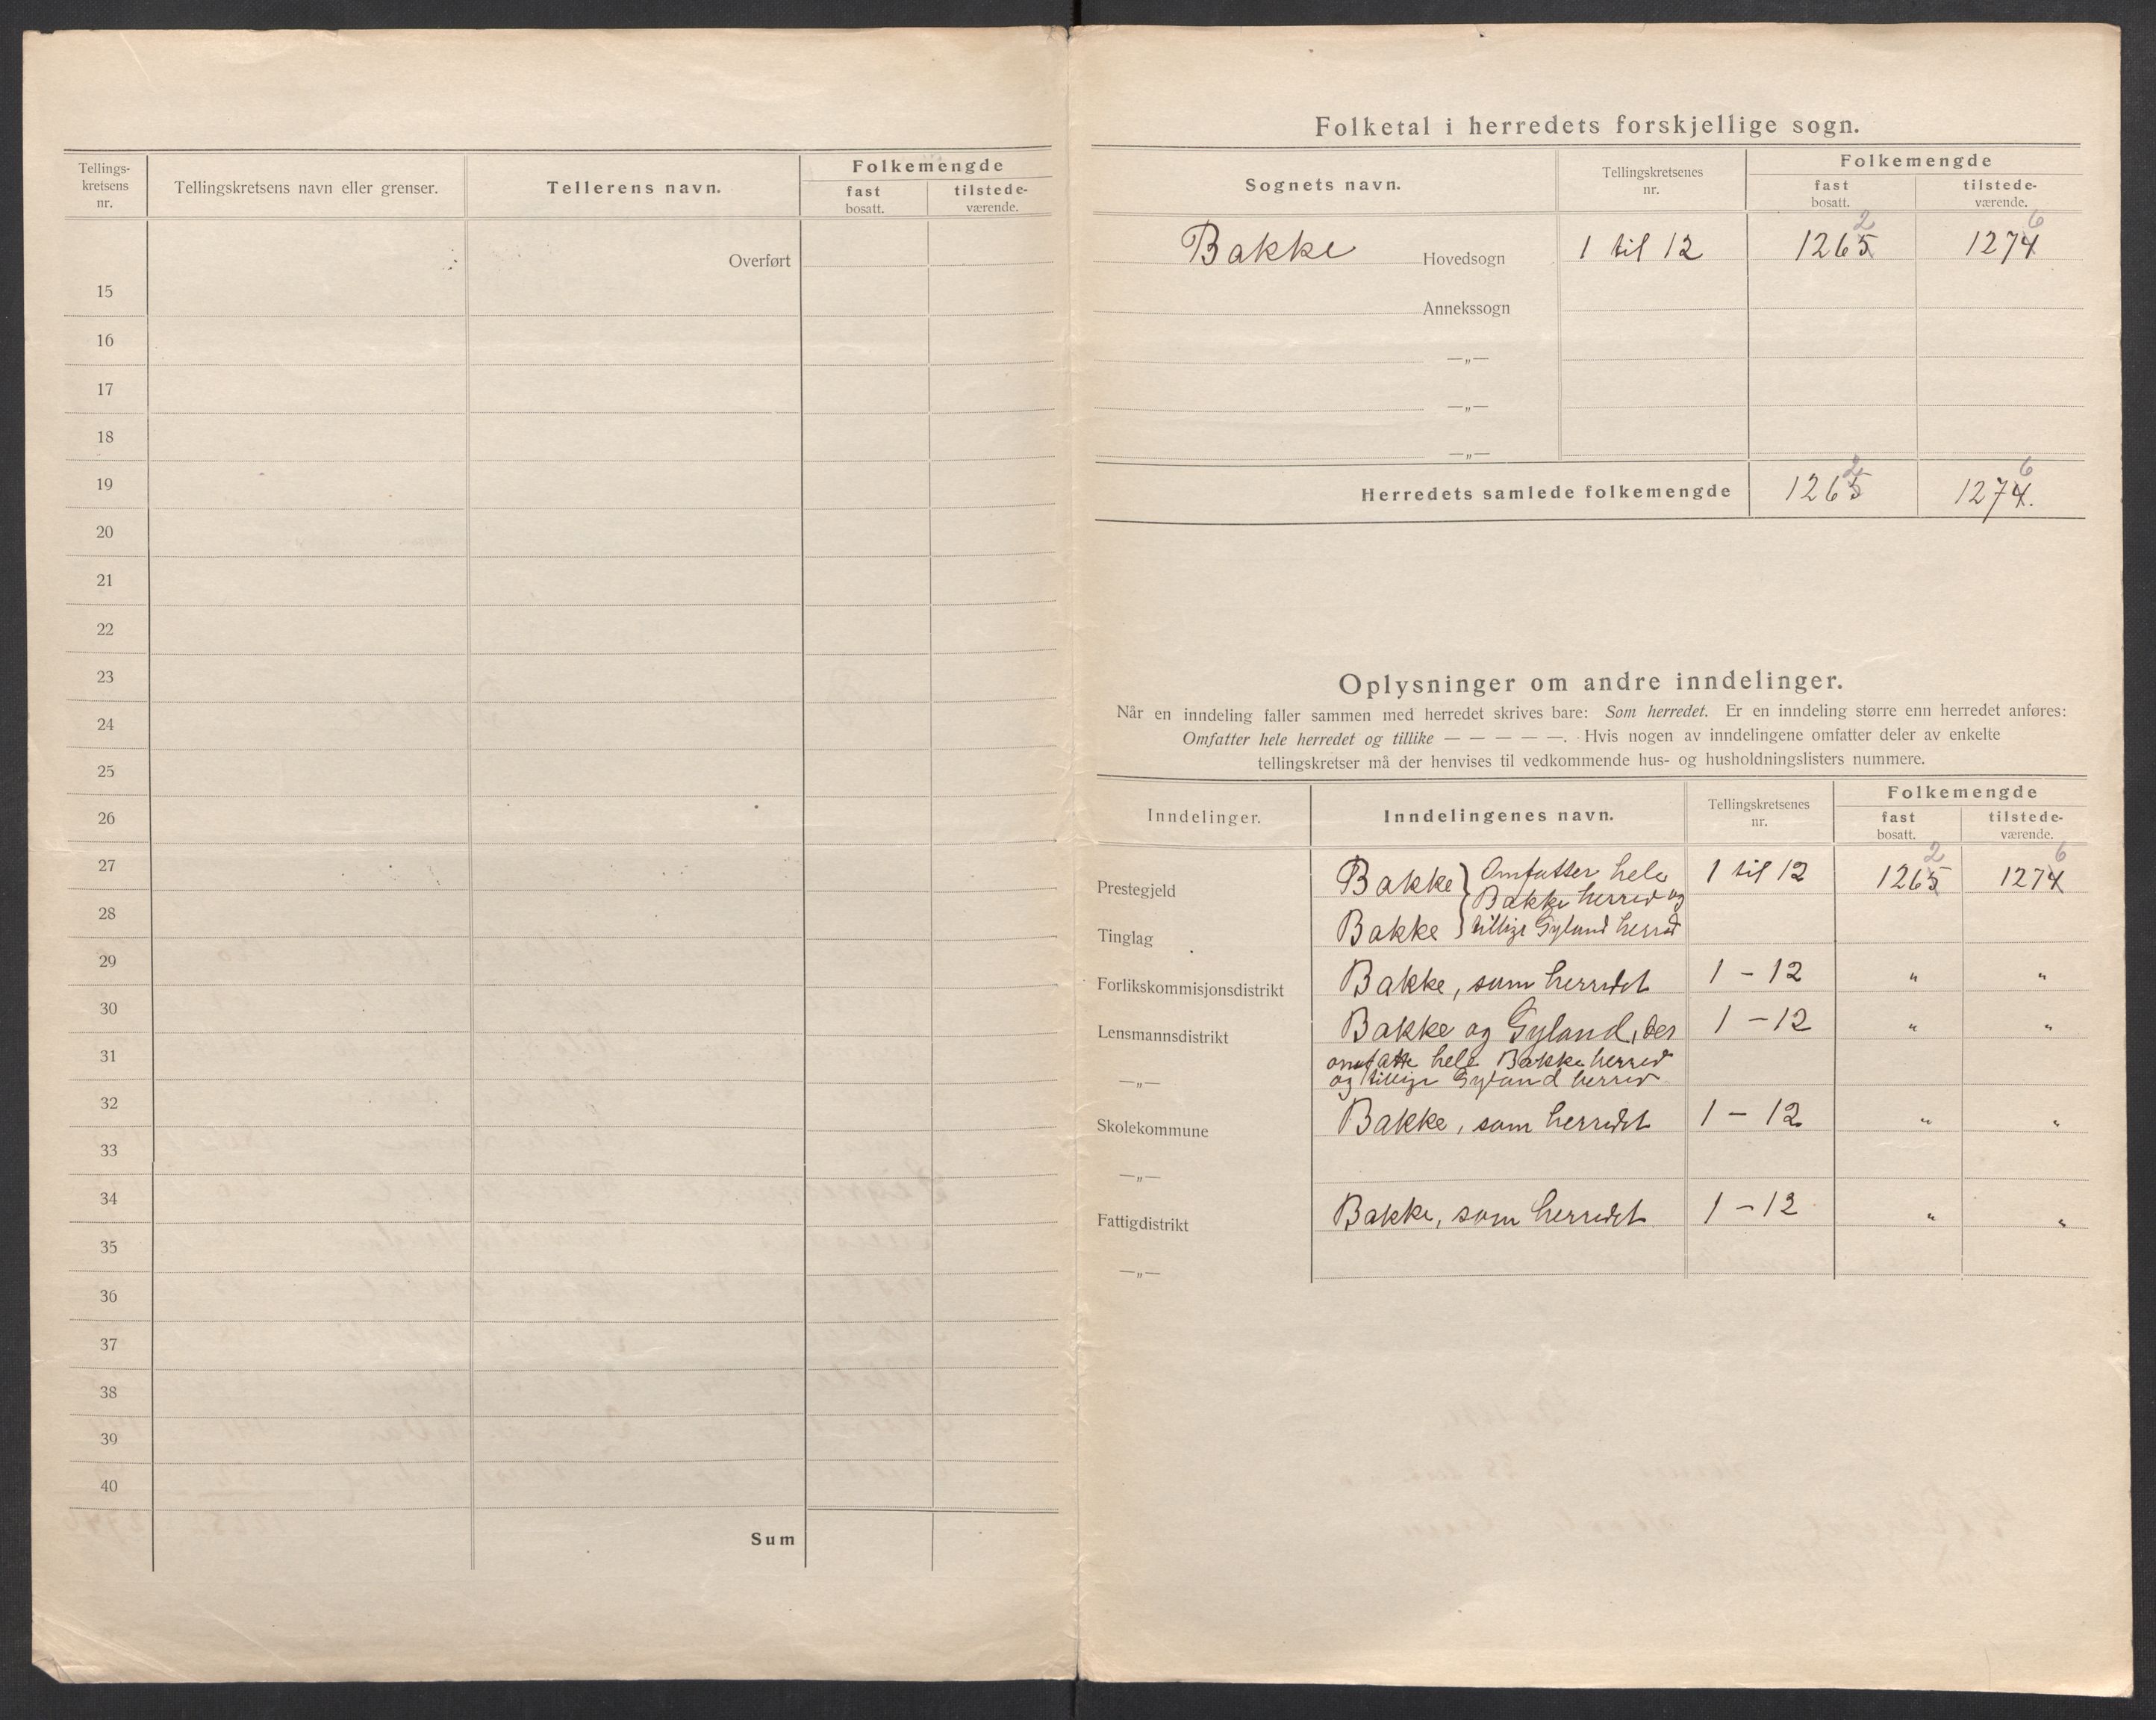 Tellings-
kretsens
nr.
Tellingskretsens navn eller grenser.
Tellerens navn.
Folkemengde
fast
bosatt.
tilstede-
værende.
Overført
15
16
17
18
19
20
21
22
23
24
25
26
27
28
29
30
31
32
33
34
35
36
37
38
39
40
Sum
Folketal i herredets forskjellige sogn.
Sognets navn.
Tellingskretsenes
nr.
Folkemengde
fast
bosatt.
tilstede-
værende.
2 6
Bakke Hovedsogn 1 til 12 1265 1274
Annekssogn
—„—
—„—
—„—
2 6
Herredets samlede folkemengde 1265 1274.
Oplysninger om andre inndelinger.
Når en inndeling faller sammen med herredet skrives bare: Som herredet. Er en inndeling større enn herredet anføres:
Omfatter hele herredet og tillike — — — — —. Hvis nogen av inndelingene omfatter deler av enkelte
tellingskretser må der henvises til vedkommende hus- og husholdningslisters nummere.
Inndelinger.
Inndelingenes navn.
Tellingskretsenes
nr.
Folkemengde
fast
bosatt.
tilstede-
værende.
2 6
Prestegjeld Bakke } Omfatter hele 1 til 12 1265 1274
Bakke herred og
Tinglag Bakke } tillige Gyland herred
Forlikskommisjonsdistrikt Bakke, som herredet 1 - 12 " "
Lensmannsdistrikt Bakke og Gyland, der 1 - 12 " "
omfatte hele Bakke herred
—„— og tillige Gyland herred
Skolekommune Bakke, som herredet 1 - 12 " "
—„—
Fattigdistrikt Bakke, som herredet 1 - 12 " "
—„—